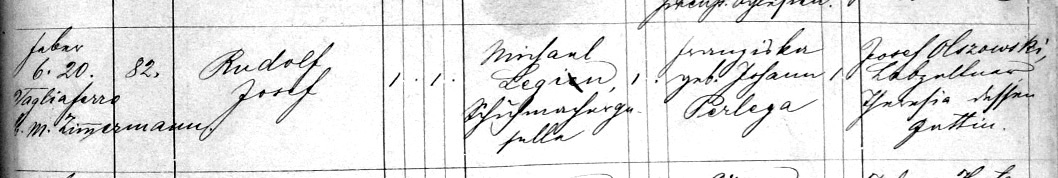 6. 20.
Tagliaferro
H. M. Zimmermann.
82.
Rudolf
Josef
1
1
Michael
Legien,
Schuhmacherge-
selle
1
Franziska
geb. Johann
Perlega
1
Josef Olszowski,
Theresia dessen
Gattin.